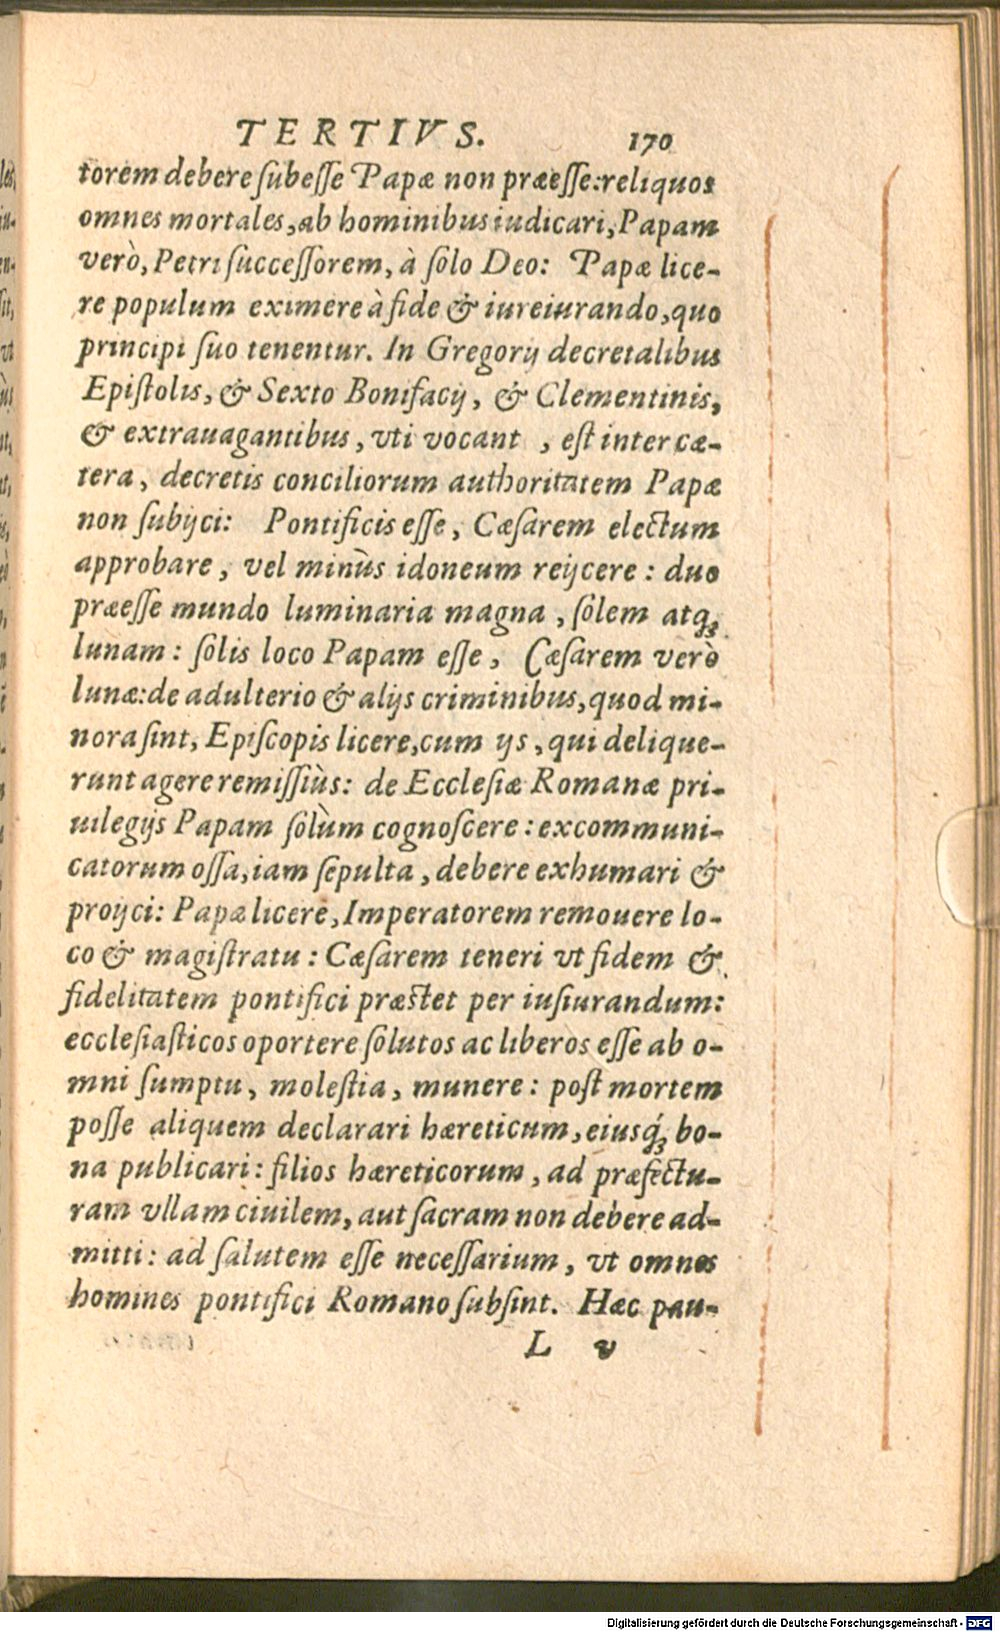 TERTIVS. 170
torem debere ſubeſſe Papæ non præeſſe: reliquos
omnes mortales, ab hominibus iudicari, Papam
verò, Petri ſucceſſorem, à ſolo Deo: Papæ lice-
re populum eximere à fide & iureiurando, quo
principi ſuo tenentur. In Gregorij decretalibus
Epiſtolis, & Sexto Bonifacij, & Clementinis,
& extrauagantibus, vti vocant , eſt inter cæ-
tera, decretis conciliorum authoritatem Papæ
non ſubijci: Pontificis eſſe, Cæſarem electum
approbare, vel minùs idoneum reijcere: duo
præeſſe mundo luminaria magna, ſolem atq́ꝫ
lunam: ſolis loco Papam eſſe, Cæſarem verò
lunæ: de adulterio & alijs criminibus, quod mi-
nora ſint, Epiſcopis licere, cum ijs, qui delique-
runt agere remiſſiùs: de Eccleſiæ Romanæ pri-
uilegijs Papam ſolùm cognoſcere: excommuni-
catorum oſſa, iam ſepulta, debere exhumari &
proijci: Papæ licere, Imperatorem remouere lo-
co & magiſtratu: Cæſarem teneri vt fidem &
fidelitatem pontifici præſtet per iuſiurandum:
eccleſiaſticos oportere ſolutos ac liberos eſſe ab o-
mni ſumptu, moleſtia, munere: poſt mortem
poſſe aliquem declarari hæreticum, eiusq́ꝫ bo-
na publicari: filios hæreticorum, ad præfectu-
ram vllam ciuilem, aut ſacram non debere ad-
mitti: ad ſalutem eſſe neceſſarium, vt omnes
homines pontifici Romano ſubſint. Hæc pau-
L v
Digitalisierung gefördert durch die Deutsche Forschungsgemeinschaft - DFG